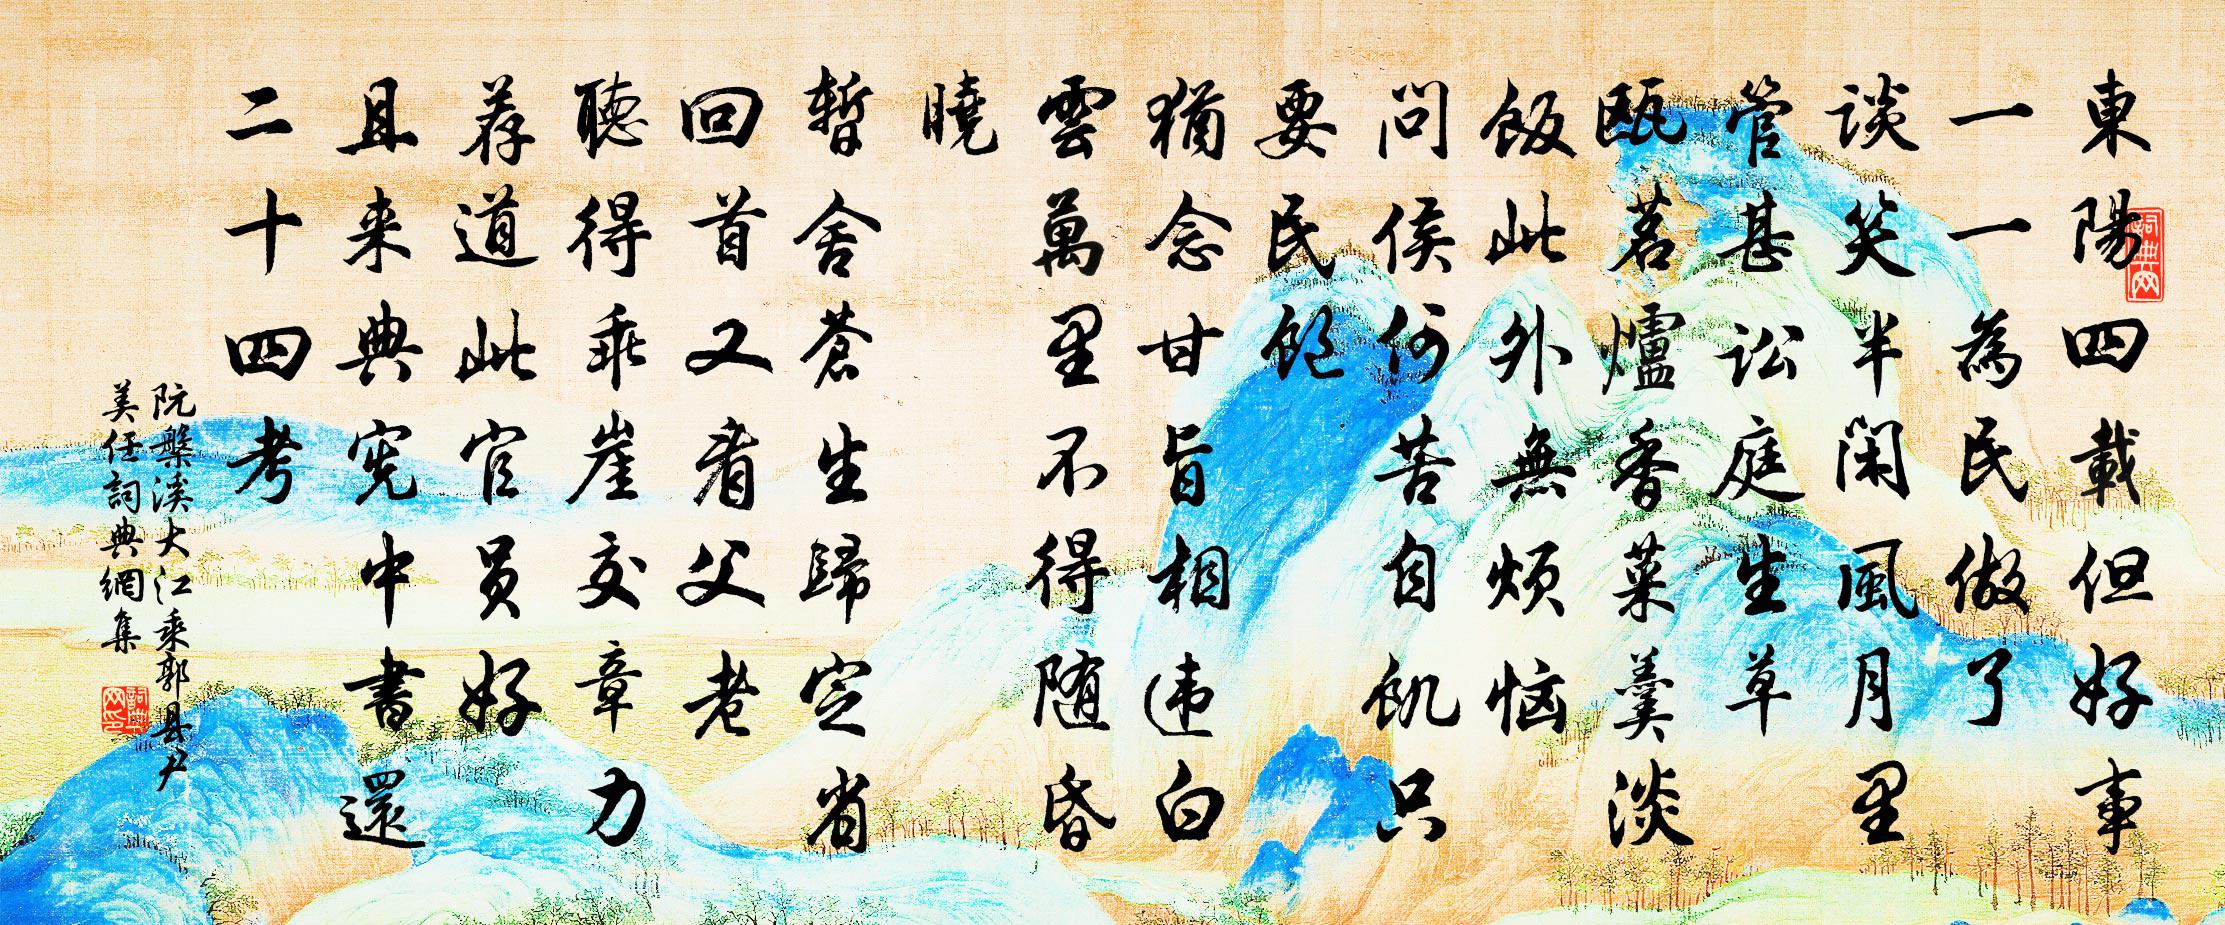 東陽四載但好事
一一為民做了
談笑半閑風月里
管甚訟庭生草
瓯茗爐香菜羹淡
飯此外無煩恼
問侯何苦自飢只
要民飽
猶念甘旨相违白
雲萬里不得随昏
曉
暫舍蒼生歸定省
回首又看父老
聽得乖崖交章力
荐道此官员好
且来典宪中書還
二十四考
阮槃溪大江乘郭县尹
美任詞典網集
詞典网
詞典网印